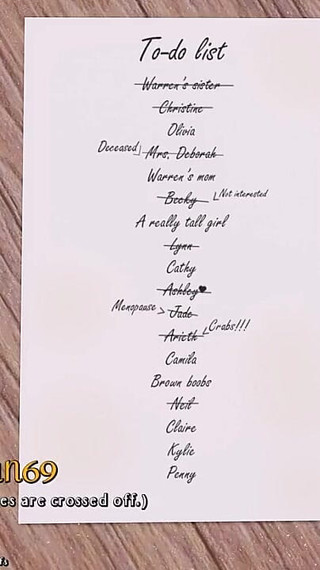 To-do list
Warren's sister
Christine
Olivia
Deceased
Mrs. Deborah
Warren's mom
Becky
Not interested
A really tall girl
Lynn
Cathy
Ashley♥
Menopause
Jade
Arieth
Crabs!!!
Camila
Brown boobs
Neil
Claire
Kylie
Penny
n69
es are crossed off.)